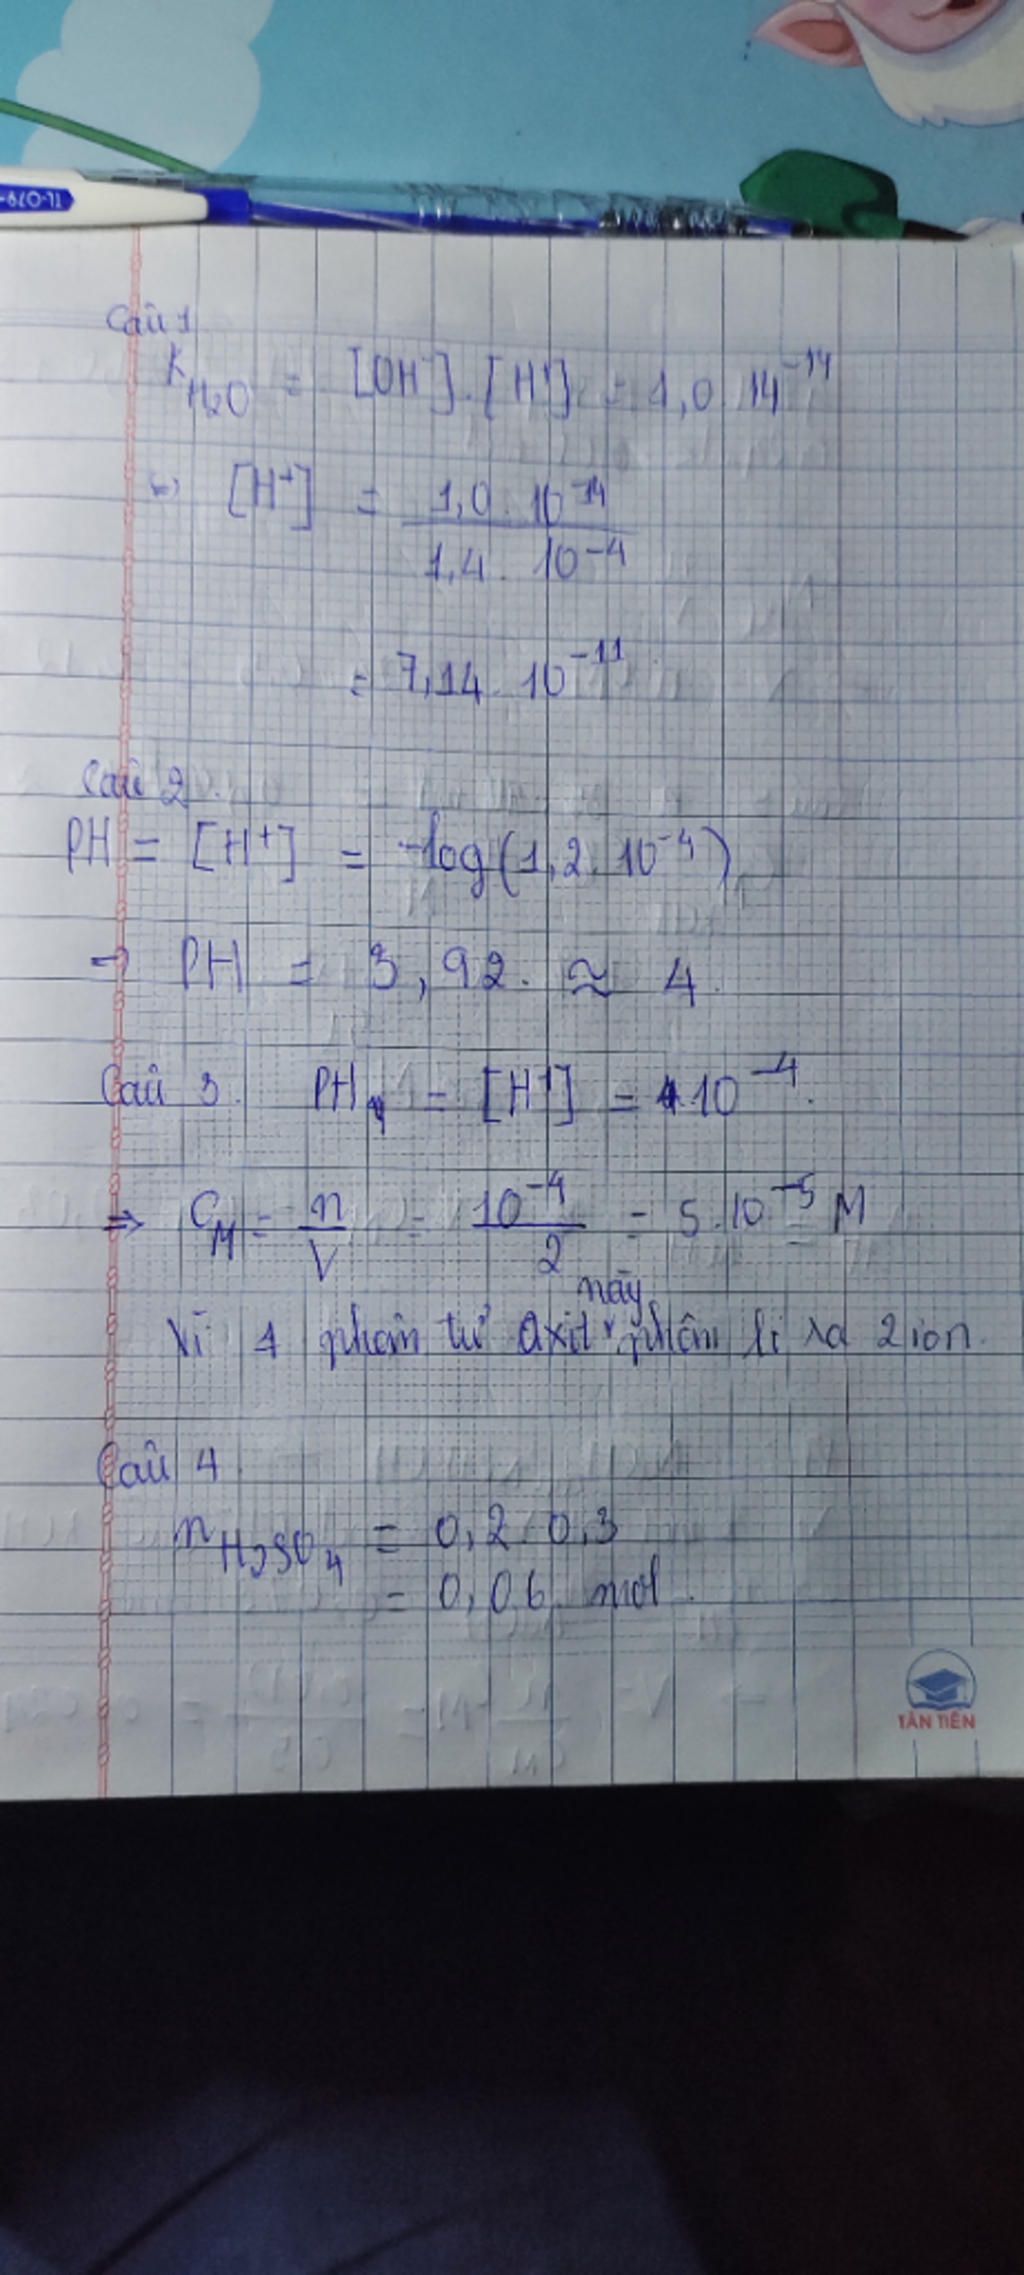 Câu 1
K_H2O = [OH⁻].[H⁺] = 1,0 14⁻¹⁴
=> [H⁺] = 1,0 . 10⁻¹⁴ / 1,4 . 10⁻⁴
= 7,14 . 10⁻¹¹
Câu 2.
PH = [H⁺] = -log(1,2.10⁻⁴)
→ PH = 3,92. ≈ 4.
Câu 3. PH = [H⁺] = 10⁻⁴.
=> C_M = n/V = 10⁻⁴/2 = 5.10⁻⁵ M
Vì 1 phân tử axit này phân li ra 2 ion.
Câu 4
n_H2SO4 = 0,2.0,3
= 0,06 mol.
TÂN TIẾN